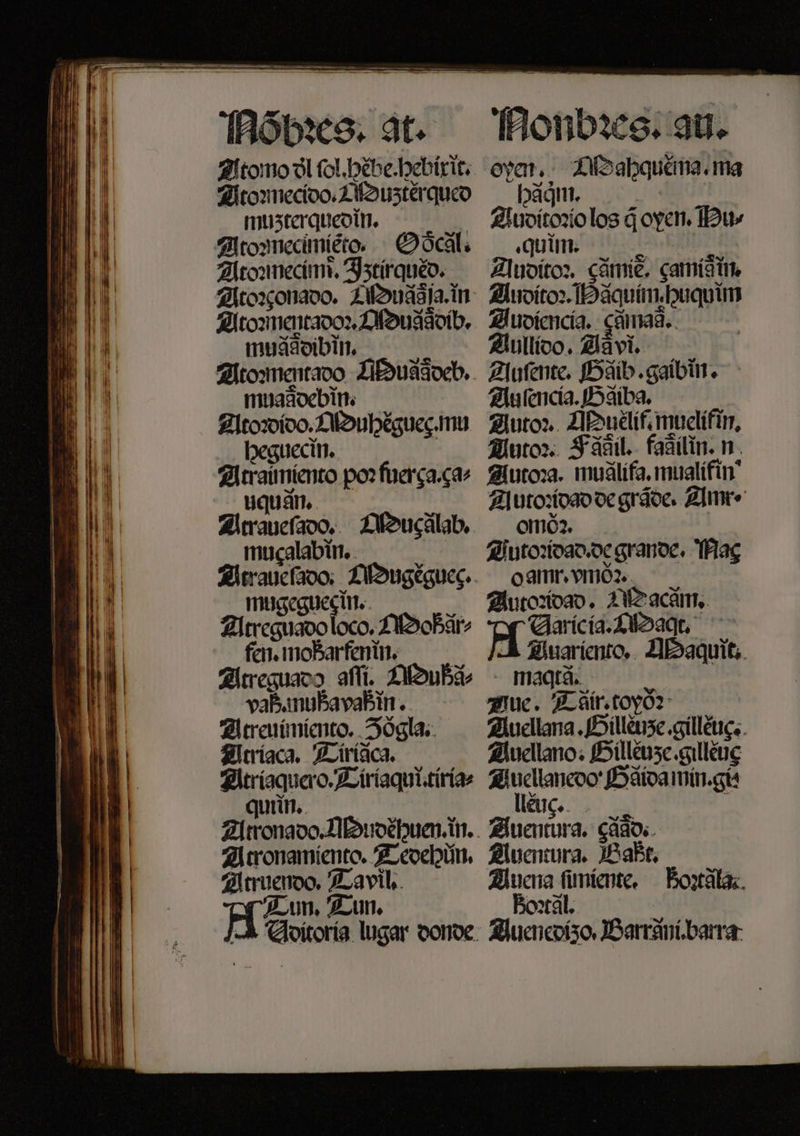 Nõbres. at.
Atomo ďl ſol. hĕbe. hebírit.
Atormecido. Mduztérqued
muzterquedin.
Atormecimiẽto. Ódcál.
Atormecimi. Jztírquĕd.
Atorçonado. Muáája. in
Atormentador, Muáádib,
muáádibin,
Atormentado Muáádeb.
muaádebin.
Atordido. Muhĕgueç. mu
heguecin.
Atraimiento por fuerça. ça=
uquán,
Atraueſado, Muçálab,
muçalabin.
Atraueſado: Mugégueç.
mugeguecin.
Atreguado loco, Moharz
fen. moharfenin.
Atreguado aſſi. Muha=
vah. muhavahin.
Atreuimiento. Dógla.
Atriaca. Tiriáca.
Atriaquero. Tiriaqui. tiria=
quiin.
Atronado. Mudĕhuen. in.
Atronamiento. Tedehún,
Atruendo, Tavil,
Tun, Tun,
A Udítoría lugar donde
Nonbres. au.
oyen. Mahquĕma. ma
háqm.
Auditorio los q̃ oyen. Hu=
quim.
Auditor. cámiĕ, camiáin,
Auditor. Háquim. huquim
Audiencia. cámaá.
Aullido, Aávi.
Auſente. Gáib. gaibin.
Auſencia. Gáiba.
Autor. Muélif. muelifin,
Autor. Fááil. faáilin. n.
Autora. muálifa. mualifin
Autoridad de gráde. Amr=
omór.
Autoridad. de grande. Nag
o amr. vmór.
Autoridad. Macám,
A Uaricia. Maqt,
Auariento. Maquit.
maqtá.
Aue. Táir. toyór
Auellana. Gilléuze. gilléuç.
Auellano. Gilléuze. gilléuç
Auellanedo Gáida min. gi=
lléuç.
Auentura. çáád.
Auentura. Baht,
Auena ſimiente, hortála.
hortál.
Auenedizo, Barráni. barra